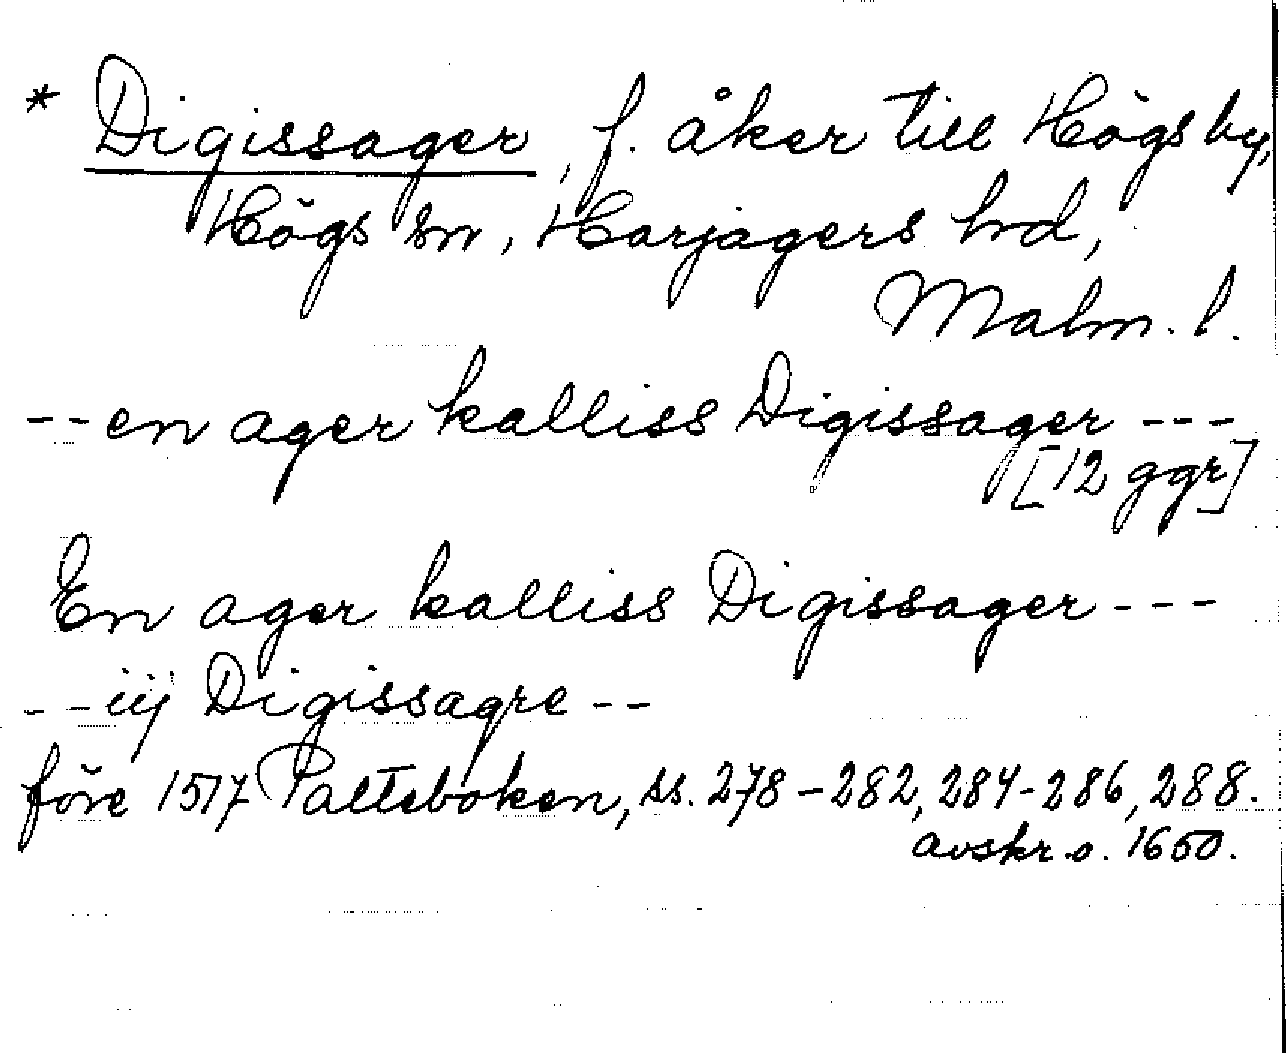 * Digissager, f. åker till Högs by,
Högs sn, Harjagers hd,
Malm. l.
-- en ager kalliss Digissager ---
[12 ggr]
En ager kalliss Digissager ---
-- iij Digissagre --
före 1517 Palteboken, ss. 278-282, 284-286, 288.
avskr. o. 1650.